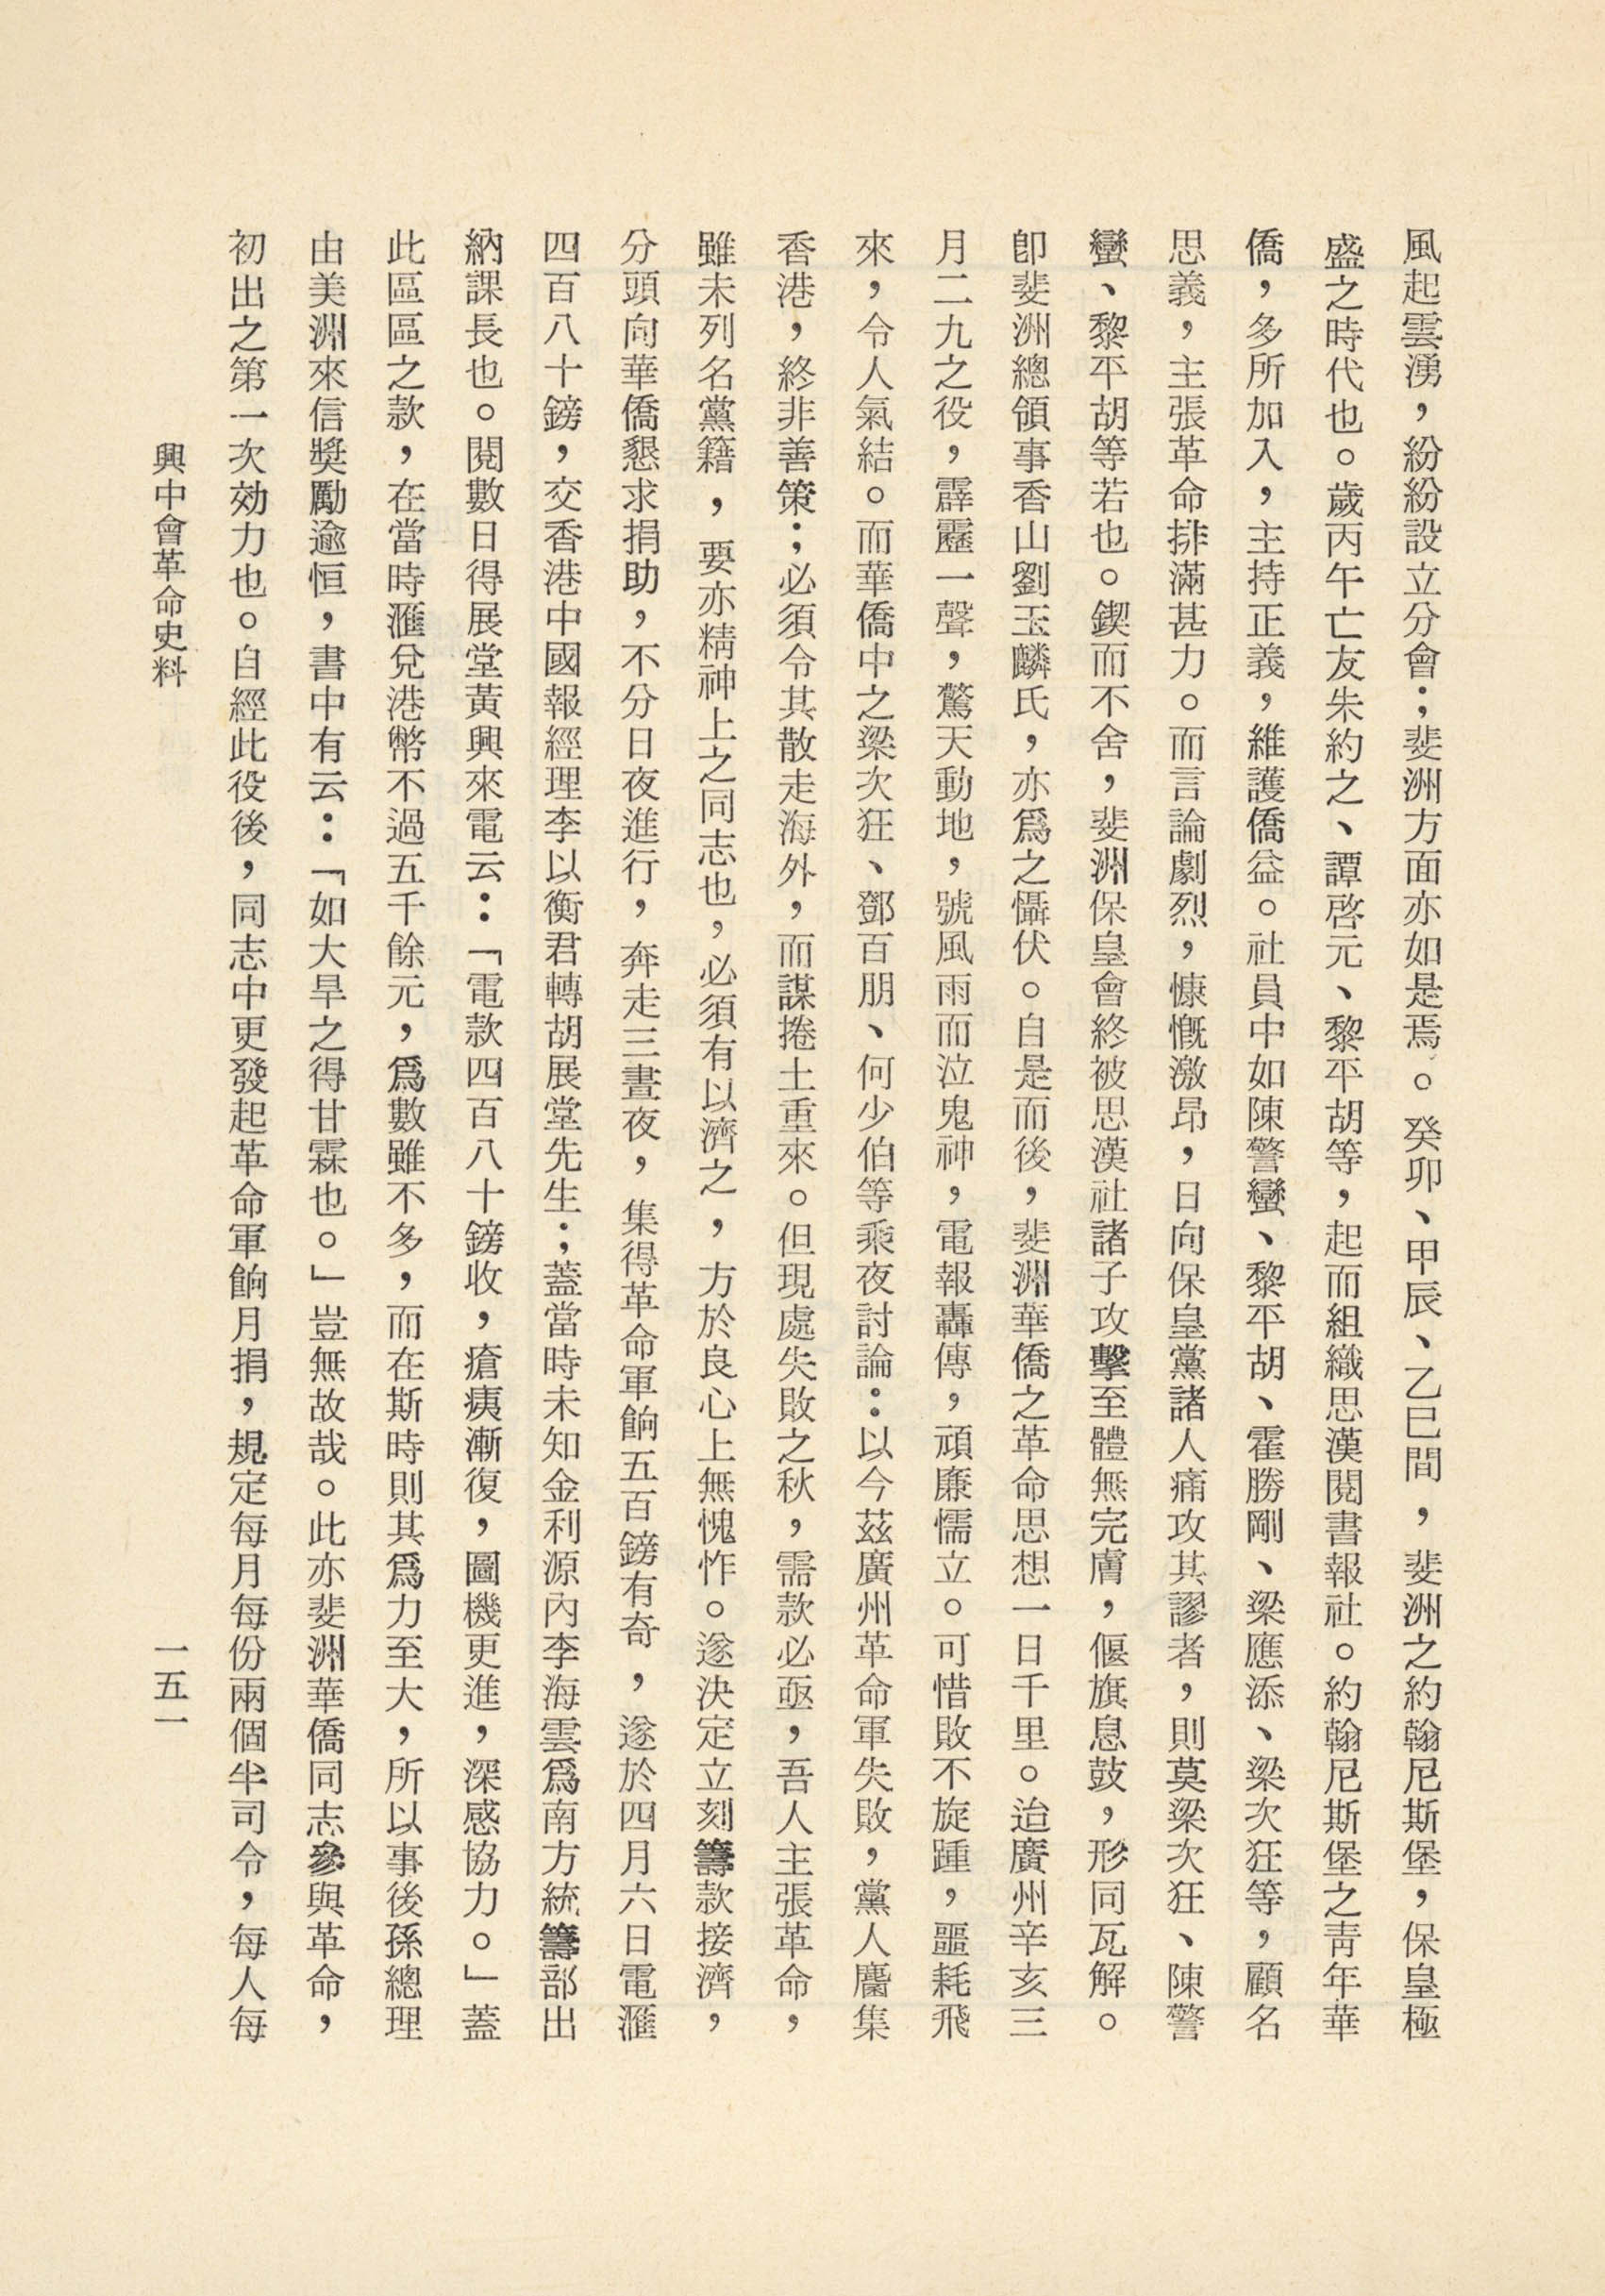 風起雲湧，紛紛設立分會；斐洲方面亦如是焉。癸卯、甲辰、乙巳間，斐洲之約翰尼斯堡，保皇極
盛之時代也。歲丙午亡友朱約之、譚啓元、黎平胡等，起而組織思漢閱書報社。約翰尼斯堡之青年華
僑，多所加入，主持正義，維護僑益。社員中如陳警蠻、黎平胡、霍勝剛、梁應添、梁次狂等，顧名
思義，主張革命排滿甚力。而言論劇烈，慷慨激昂，日向保皇黨諸人痛攻其謬者，則莫梁次狂、陳警
蠻、黎平胡等若也。鍥而不舍，斐洲保皇會終被思漢社諸子攻擊至體無完膚，偃旗息鼓，形同瓦解。
卽斐洲總領事香山劉玉麟氏，亦爲之懾伏。自是而後，斐洲華僑之革命思想一日千里。迨廣州辛亥三
月二九之役，霹靂一聲，驚天動地，號風雨而泣鬼神，電報轟傳，頑廉懦立。可惜敗不旋踵，噩耗飛
來，令人氣結。而華僑中之梁次狂、鄧百朋、何少伯等乘夜討論：以今茲廣州革命軍失敗，黨人麕集
香港，終非善策；必須令其散走海外，而謀捲土重來。但現處失敗之秋，需款必亟，吾人主張革命，
雖未列名黨籍，要亦精神上之同志也，必須有以濟之，方於良心上無愧怍。遂決定立刻籌款接濟，
分頭向華僑懇求捐助，不分日夜進行，奔走三晝夜，集得革命軍餉五百鎊有奇，遂於四月六日電滙
四百八十鎊，交香港中國報經理李以衡君轉胡展堂先生；蓋當時未知金利源內李海雲爲南方統籌部出
納課長也。閱數日得展堂黃興來電云：「電款四百八十鎊收，瘡痍漸復，圖機更進，深感協力。」蓋
此區區之款，在當時滙兌港幣不過五千餘元，爲數雖不多，而在斯時則其爲力至大，所以事後孫總理
由美洲來信獎勵逾恒，書中有云：「如大旱之得甘霖也。」豈無故哉。此亦斐洲華僑同志參與革命，
初出之第一次効力也。自經此役後，同志中更發起革命軍餉月捐，規定每月每份兩個半司令，每人每
興中會革命史料
一五一